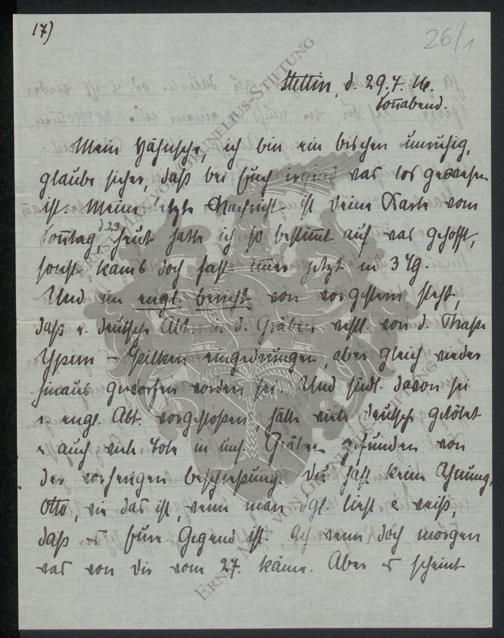 17)
26/1
Stettin, d. 29.7.16.
Sonnabend.
Mein Hähnsche, ich bin ein bischen unruhig,
glaube sicher, daß bei Euch was los gewesen
ist. Meine letzte Nachricht ist Deine Karte vom
Sonntag d 23. Heut hatte ich so bestimmt auf was gehofft,
sonst kams doch fast immer jetzt in 3 Tg.
Und im engl. bericht von vorgestern steht,
daß e. deutsche Abt. i. d. Gräben westl. von d. Straße
Ypern – Pilkem eingedrungen, aber gleich wieder
hinaus geworfen worden sei. Und südl. davon sei
e. engl. Abt. vorgestoßen, hätte viele deutsche getötet
u. auch viele Tote in uns. Gräben gefunden von
der vorherigen beschießung. Du hast keine Ahnung,
Otto, wie das ist, wenn man dgl. liest u. weiß,
daß es Eure Gegend ist. Ach wenn doch morgen
was von Dir vom 27. käme. Aber es scheint
ERNST MAX VON
CORNELIUS-STIFTUNG